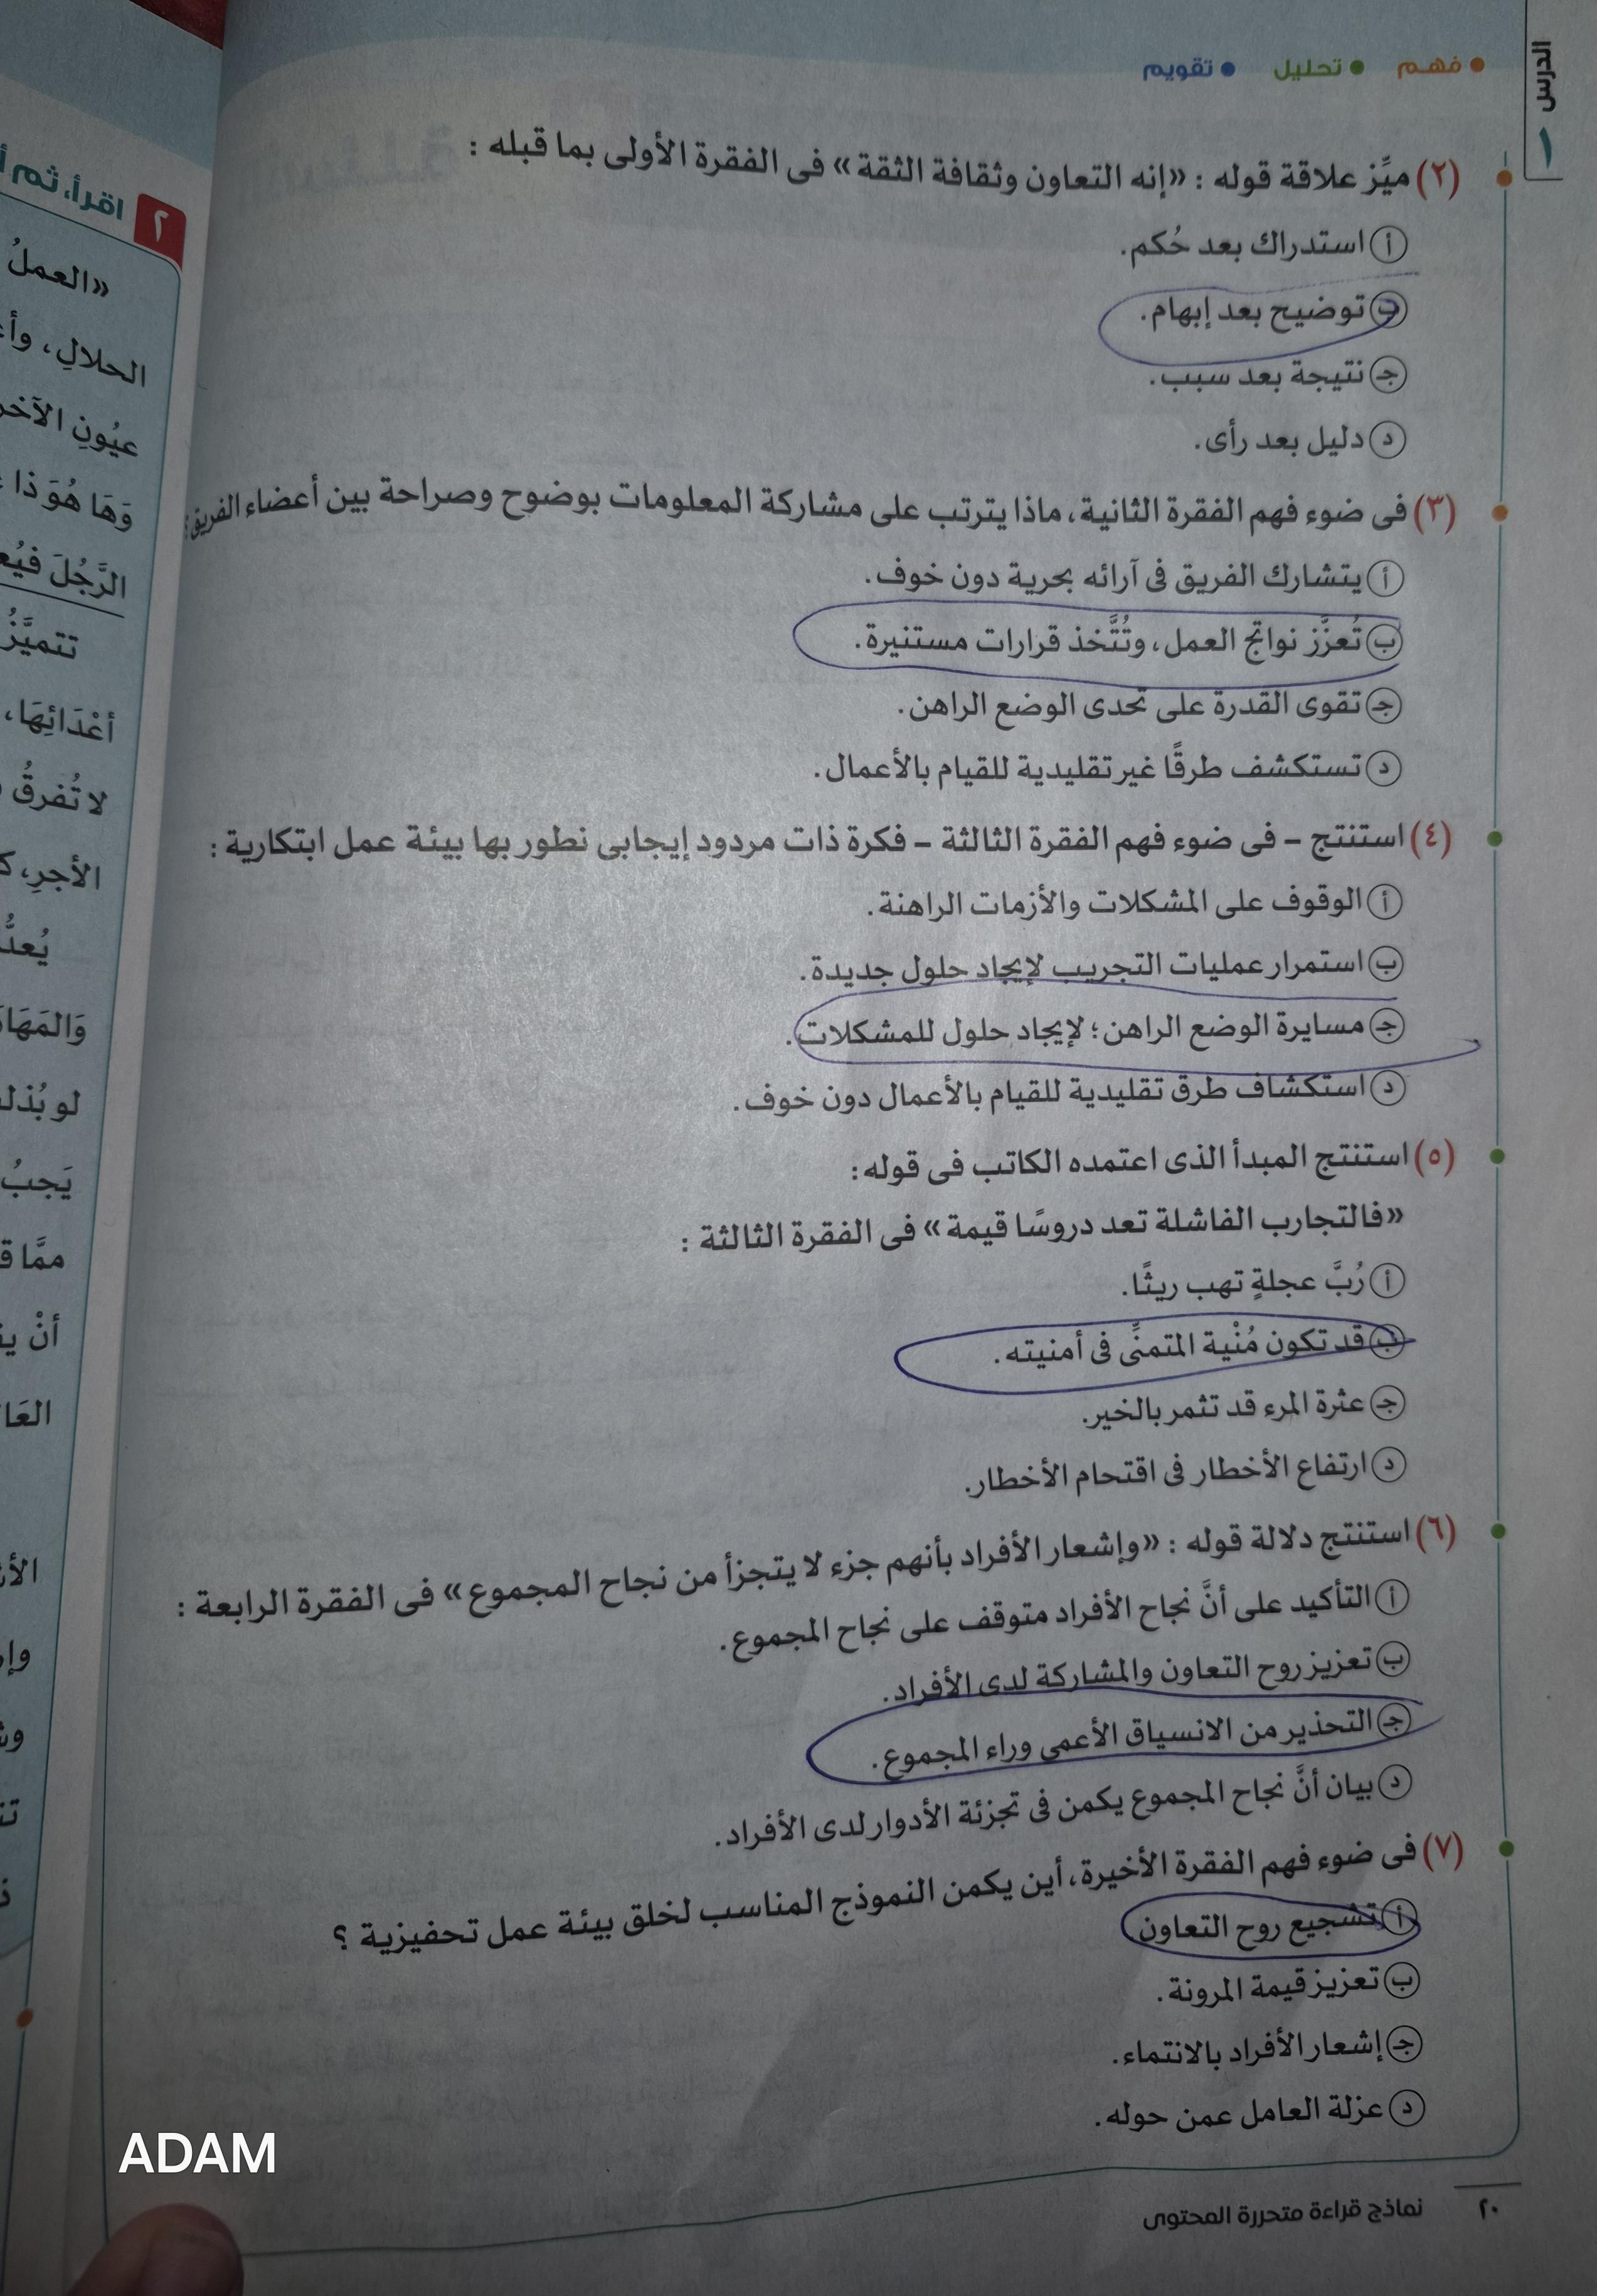 الدرس ١
• فهم • تحليل • تقويم
(٢) ميِّز علاقة قوله : «إنه التعاون وثقافة الثقة» فى الفقرة الأولى بما قبله :
أ استدراك بعد حُكم.
ب توضيح بعد إبهام.
جـ نتيجة بعد سبب.
د دليل بعد رأى.
(٣) فى ضوء فهم الفقرة الثانية، ماذا يترتب على مشاركة المعلومات بوضوح وصراحة بين أعضاء الفريق؟
أ يتشارك الفريق فى آرائه بحرية دون خوف.
ب تُعزَّز نواتج العمل، وتُتَّخذ قرارات مستنيرة.
جـ تقوى القدرة على تحدى الوضع الراهن.
د تستكشف طرقًا غير تقليدية للقيام بالأعمال.
(٤) استنتج – فى ضوء فهم الفقرة الثالثة – فكرة ذات مردود إيجابى نطور بها بيئة عمل ابتكارية :
أ الوقوف على المشكلات والأزمات الراهنة.
ب استمرار عمليات التجريب لإيجاد حلول جديدة.
جـ مسايرة الوضع الراهن؛ لإيجاد حلول للمشكلات.
د استكشاف طرق تقليدية للقيام بالأعمال دون خوف.
(٥) استنتج المبدأ الذى اعتمده الكاتب فى قوله:
«فالتجارب الفاشلة تعد دروسًا قيمة» فى الفقرة الثالثة :
أ رُبَّ عجلةٍ تهب ريثًا.
ب قد تكون مُنْية المتمنِّى فى أمنيته.
جـ عثرة المرء قد تثمر بالخير.
د ارتفاع الأخطار فى اقتحام الأخطار.
(٦) استنتج دلالة قوله : «وإشعار الأفراد بأنهم جزء لا يتجزأ من نجاح المجموع» فى الفقرة الرابعة :
أ التأكيد على أنَّ نجاح الأفراد متوقف على نجاح المجموع.
ب تعزيز روح التعاون والمشاركة لدى الأفراد.
جـ التحذير من الانسياق الأعمى وراء المجموع.
د بيان أنَّ نجاح المجموع يكمن فى تجزئة الأدوار لدى الأفراد.
(٧) فى ضوء فهم الفقرة الأخيرة، أين يكمن النموذج المناسب لخلق بيئة عمل تحفيزية ؟
أ تشجيع روح التعاون
ب تعزيز قيمة المرونة.
جـ إشعار الأفراد بالانتماء.
د عزلة العامل عمن حوله.
٢٠ نماذج قراءة متحررة المحتوى
٢ اقرأ، ثم
«العملُ
الحلالِ،
عيُونِ
وَهَا هُوَ ذَا
الرَّجُلَ
تتميَّزُ
أعْدَائِهَا،
لا تُفرقُ
الأجرِ،
يُعدُّ
لو
يَجبُ
ممَّا
أنْ
ADAM